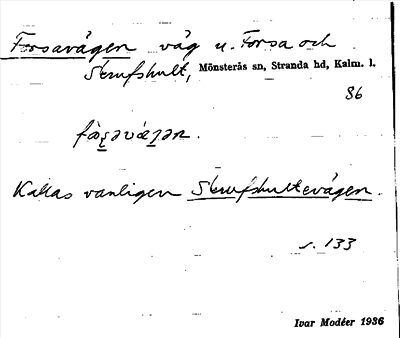 Forsavägen väg u. Forsa och
Skrufshult, Mönsterås sn, Stranda hd, Kalm. l.
86
fàʂavá̱ʒən.
Kallas vanligen Skrufshultevägen.
s. 133
Ivar Modéer 1936